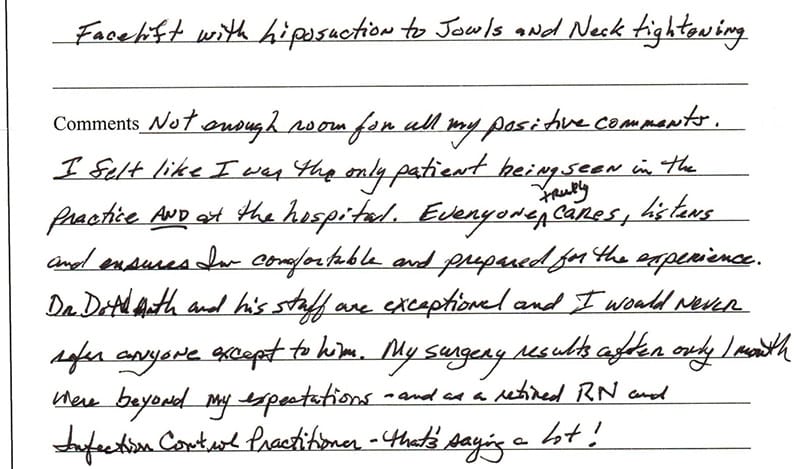 Facelift with Liposuction to Jowls and Neck tightening
Comments Not enough room for all my positive comments.
I felt like I was the only patient being seen in the
truly
practice AND at the hospital. Everyone cares, listens
and ensures I'm comfortable and prepared for the experience.
Dr. and his staff are exceptional and I would never
refer anyone except to him. My surgery results after only 1 month
were beyond my expectations - and as a retired RN and
Infection Control Practitioner - that's saying a lot!